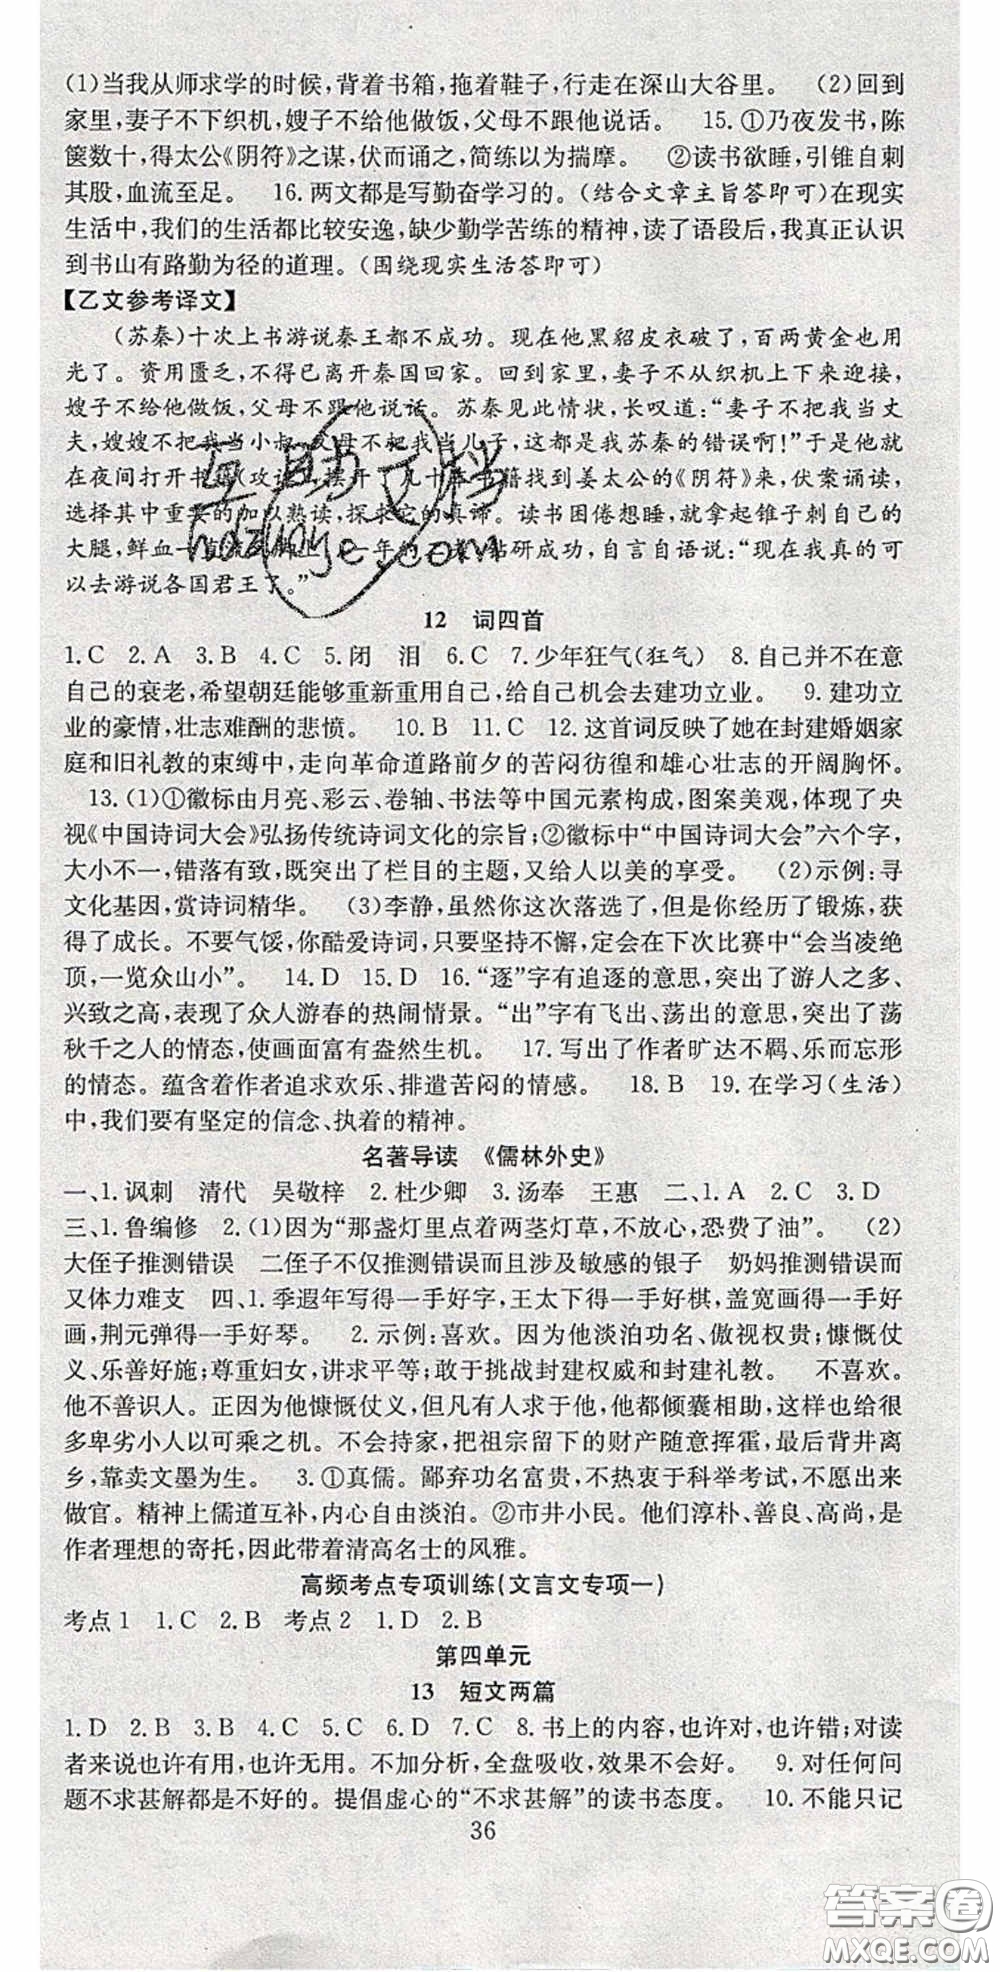 (1)当我从师求学的时候,背着书箱,拖着鞋子,行走在深山大谷里。 (2)回到
家里,妻子不下织机,嫂子不给他做饭,父母不跟他说话。 15.①乃夜发书,陈
箧数十,得太公《阴符》之谋,伏而诵之,简练以为揣摩。 ②读书欲睡,引锥自刺
其股,血流至足。 16.两文都是写勤奋学习的。(结合文章主旨答即可)在现实
生活中,我们的生活都比较安逸,缺少勤学苦练的精神,读了语段后,我真正认识
到书山有路勤为径的道理。(围绕现实生活答即可)
【乙文参考译文】
(苏秦)十次上书游说秦王都不成功。现在他黑貂皮衣破了,百两黄金也用
光了。资用匮乏,不得已离开秦国回家。回到家里,妻子不从织机上下来迎接,
嫂子不给他做饭,父母不跟他说话。苏秦见此情状,长叹道:“妻子不把我当丈
夫,嫂嫂不把我当小叔,父母不把我当儿子,这都是我苏秦的错误啊!”于是他就
在夜间打开书箱(攻读),摆开了几十本书籍找到姜太公的《阴符》来,伏案诵读,
选择其中重要的加以熟读,探求它的真谛。读书困倦想睡,就拿起锥子刺自己的
大腿,鲜血一直流 一年 钻研成功,自言自语说:“现在我真的可
以去游说各国君王了。”
12 词四首
1.C 2.A 3.B 4.C 5.闭 泪 6.C 7.少年狂气(狂气) 8.自己并不在意
自己的衰老,希望朝廷能够重新重用自己,给自己机会去建功立业。 9.建功立
业的豪情,壮志难酬的悲愤。 10.B 11.C 12.这首词反映了她在封建婚姻家
庭和旧礼教的束缚中,走向革命道路前夕的苦闷彷徨和雄心壮志的开阔胸怀。
13.(1)①徽标由月亮、彩云、卷轴、书法等中国元素构成,图案美观,体现了央
视《中国诗词大会》弘扬传统诗词文化的宗旨;②徽标中“中国诗词大会”六个字,
大小不一,错落有致,既突出了栏目的主题,又给人以美的享受。 (2)示例:寻
文化基因,赏诗词精华。 (3)李静,虽然你这次落选了,但是你经历了锻炼,获
得了成长。不要气馁,你酷爱诗词,只要坚持不懈,定会在下次比赛中“会当凌绝
顶,一览众山小”。 14.D 15.D 16.“逐”字有追逐的意思,突出了游人之多、
兴致之高,表现了众人游春的热闹情景。“出”字有飞出、荡出的意思,突出了荡
秋千之人的情态,使画面富有盎然生机。 17.写出了作者旷达不羁、乐而忘形
的情态。蕴含着作者追求欢乐、排遣苦闷的情感。 18.B 19.在学习(生活)
中,我们要有坚定的信念、执着的精神。
名著导读 《儒林外史》
一、1.讽刺 清代 吴敬梓 2.杜少卿 3.汤奉 王惠 二、1.A 2.C 3.D
三、1.鲁编修 2.(1)因为“那盏灯里点着两茎灯草,不放心,恐费了油”。 (2)
大侄子推测错误 二侄子不仅推测错误而且涉及敏感的银子 奶妈推测错误而
又体力难支 四、1.季遐年写得一手好字,王太下得一手好棋,盖宽画得一手好
画,荆元弹得一手好琴。 2.示例:喜欢。因为他淡泊功名、傲视权贵;慷慨仗
义、乐善好施;尊重妇女,讲求平等;敢于挑战封建权威和封建礼教。 不喜欢。
他不善识人。正因为他慷慨仗义,但凡有人求于他,他都倾囊相助,这样就给很
多卑劣小人以可乘之机。不会持家,把祖宗留下的财产随意挥霍,最后背井离
乡,靠卖文墨为生。 3.①真儒。鄙弃功名富贵,不热衷于科举考试,不愿出来
做官。精神上儒道互补,内心自由淡泊。②市井小民。他们淳朴、善良、高尚,是
作者理想的寄托,因此带着清高名士的风雅。
高频考点专项训练(文言文专项一)
考点1 1.C 2.B 考点2 1.D 2.B
第四单元
13 短文两篇
1.D 2.B 3.B 4.C 5.C 6.D 7.C 8.书上的内容,也许对,也许错;对读
者来说也许有用,也许无用。不加分析,全盘吸收,效果不会好。 9.对任何问
题不求甚解都是不好的。提倡虚心的“不求甚解”的读书态度。 10.不能只记
36
互助文档
hdzuoye.com
答案圈
MXQE.COM